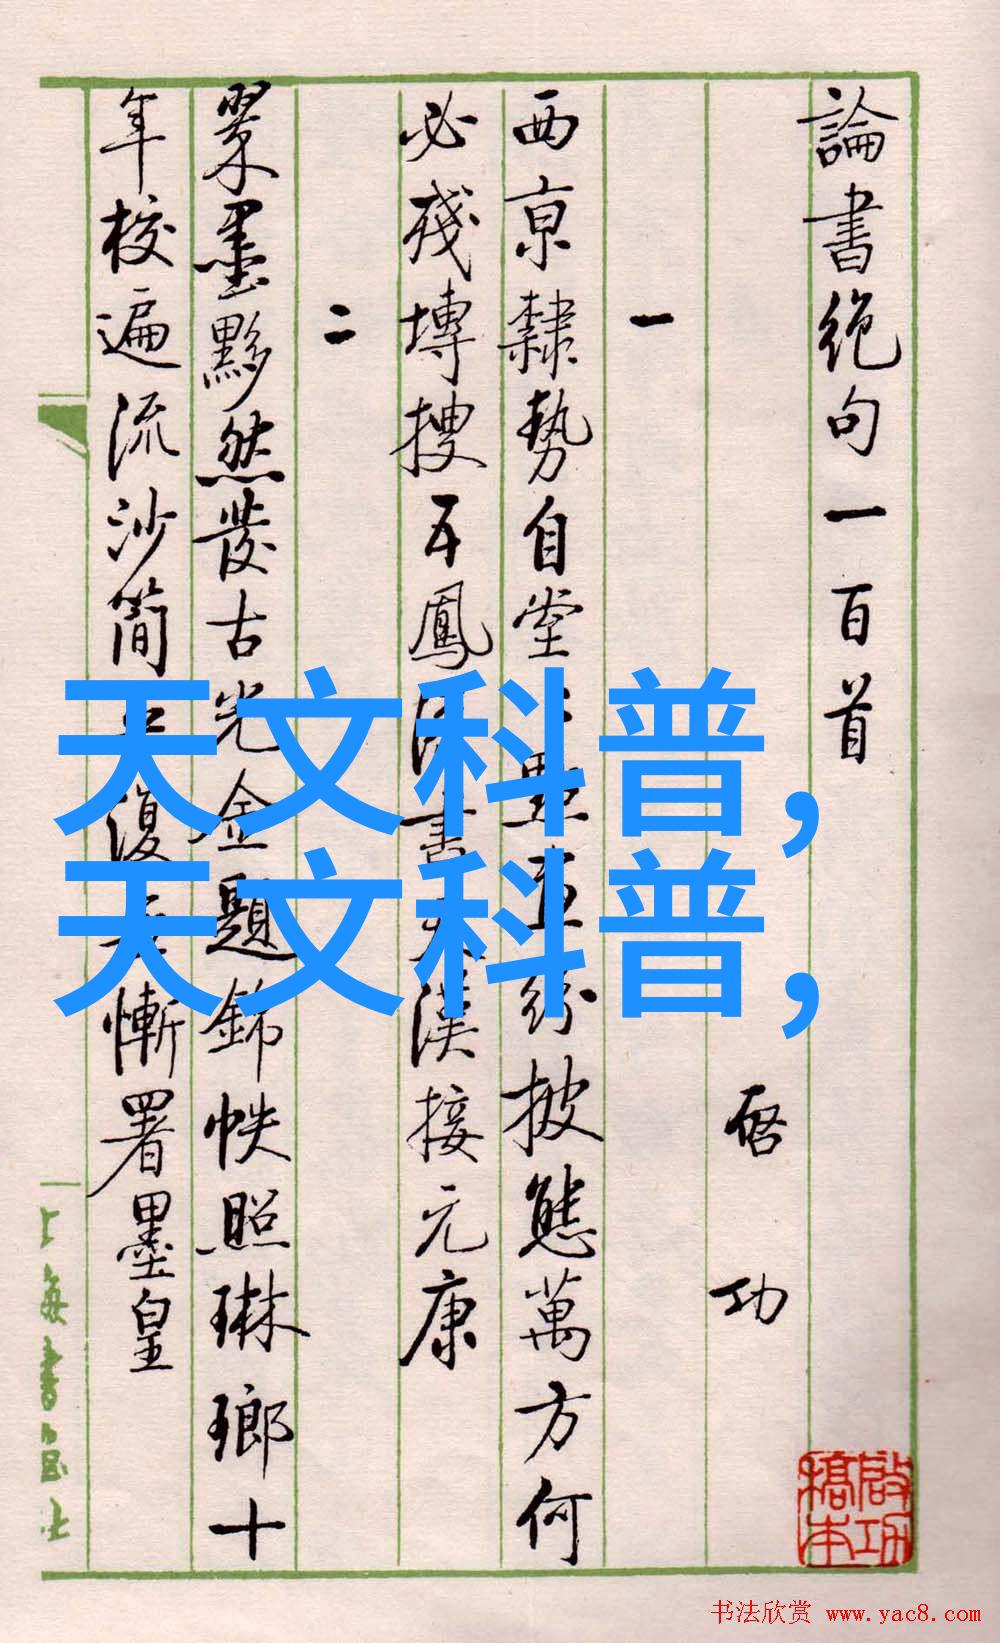 論書絶句一百首
啓功
一
西京隸勢自堂
紛披態萬方何
必殘塼搜五鳳
書天漢接元康
二
翠墨黟然發古光金題錦帙照琳瑯十
年校遍流沙簡
復
慚署墨皇
上海書画社
啟功
稿本
天文科普，
天文科普，
书法欣赏 www.yac8.com